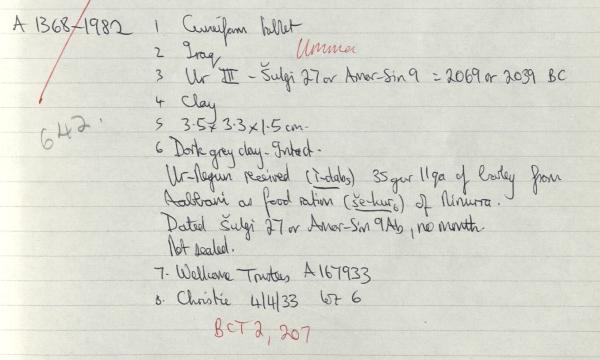 A 1368-1982 1 Cuneiform tablet
2 Iraq Umma
3 Ur III - Šulgi 27 or Amar-Sin 9 = 2069 or 2039 BC
4 Clay
642.
5 3.5 x 3.3 x 1.5 cm.
6 Dark grey clay. Intact.
Ur-Negun received (ì-dab₅) 35 gur 11 qa of barley from
as food ration (še-kur₆) of
Dated Šulgi 27 or Amar-Sin 9Ab, no month.
Not sealed.
7. Wellcome Trustees A 167933
8. Christie 4/4/33 lot 6
BCT 2, 207